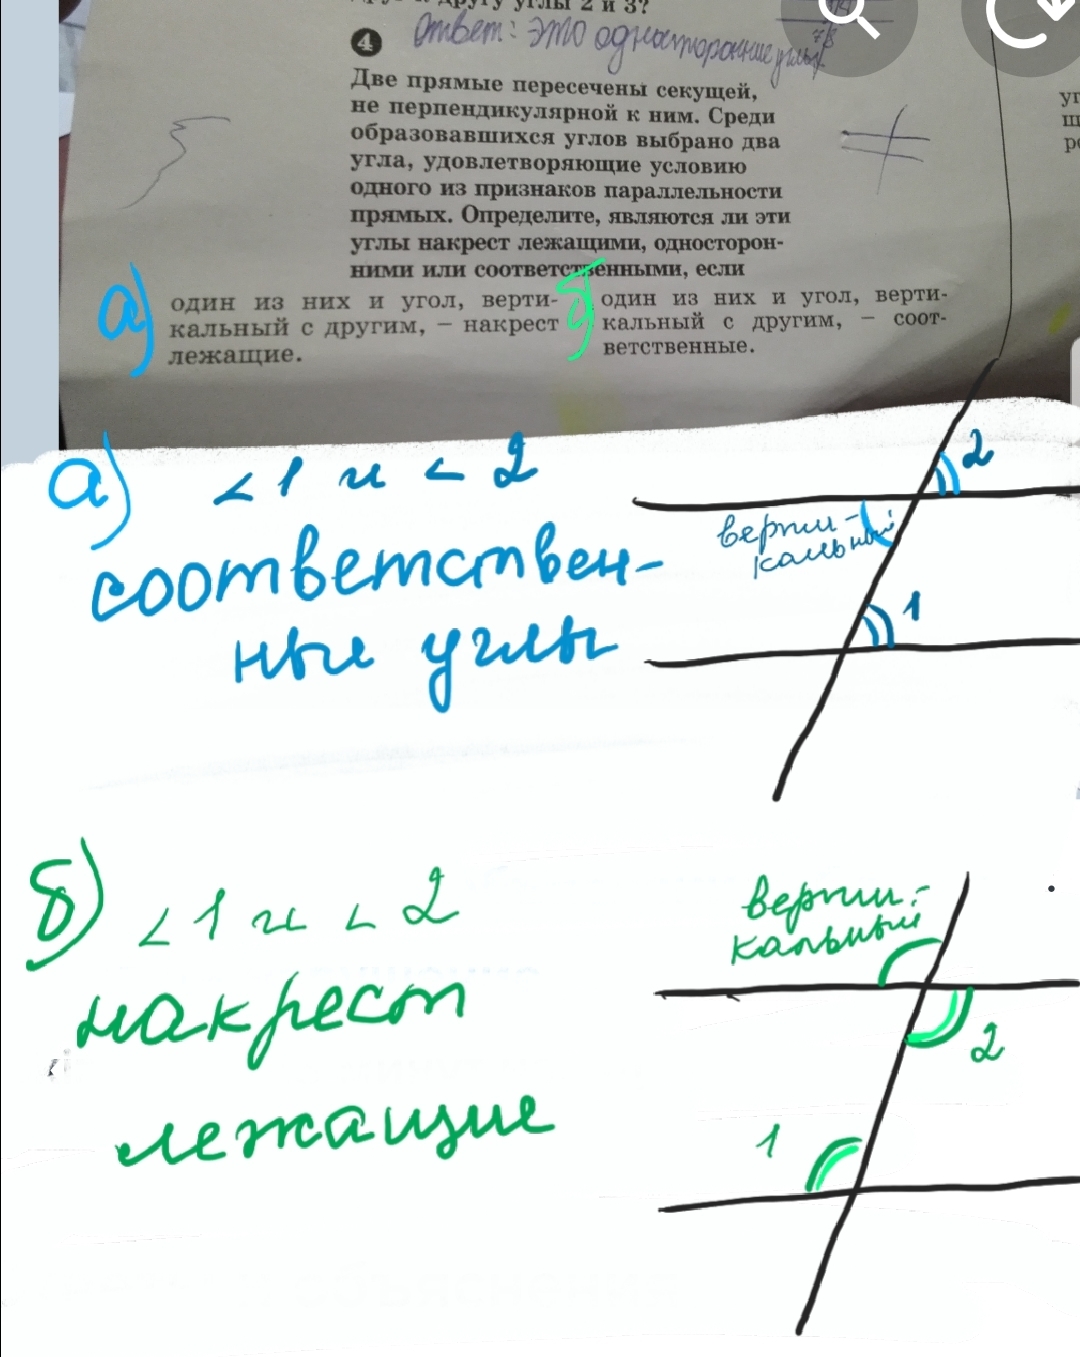 друг к другу углы 2 и 3?
4 Ответ: это односторонние углы
Две прямые пересечены секущей,
не перпендикулярной к ним. Среди
образовавшихся углов выбрано два
угла, удовлетворяющие условию
одного из признаков параллельности
прямых. Определите, являются ли эти
углы накрест лежащими, односторон-
ними или соответственными, если
а) один из них и угол, верти-
кальный с другим, – накрест
лежащие.
б) один из них и угол, верти-
кальный с другим, – соот-
ветственные.
а) <1 и <2
соответствен-
ные углы
2
верти-
кальный
1
б) <1 и <2
накрест
лежащие
верти-
кальный
2
1